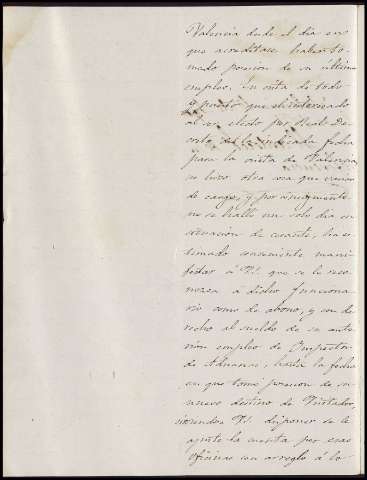 Valencia desde el dia en
que acreditase haber to-
mado posesion de su último
empleo. En vista de todo
y puesto que el interesado
al ser electo por Real De-
creto de la indicada fecha
para la visita de Valencia
no hizo otra cosa que variar
de cargo, y por consiguiente
no se halló un solo dia en
situacion de cesante, ha es-
timado conveniente mani-
festar á V.I. que se le reco-
nozca á dicho funciona-
rio como de abono, y con de-
recho al sueldo de su ante-
rior empleo de Inspector
de Aduanas, hasta la fecha
en que tomó posesion de su
nuevo destino de Visitador,
V.I. disponer se le
ajuste la cuenta por esas
oficinas con arreglo á lo